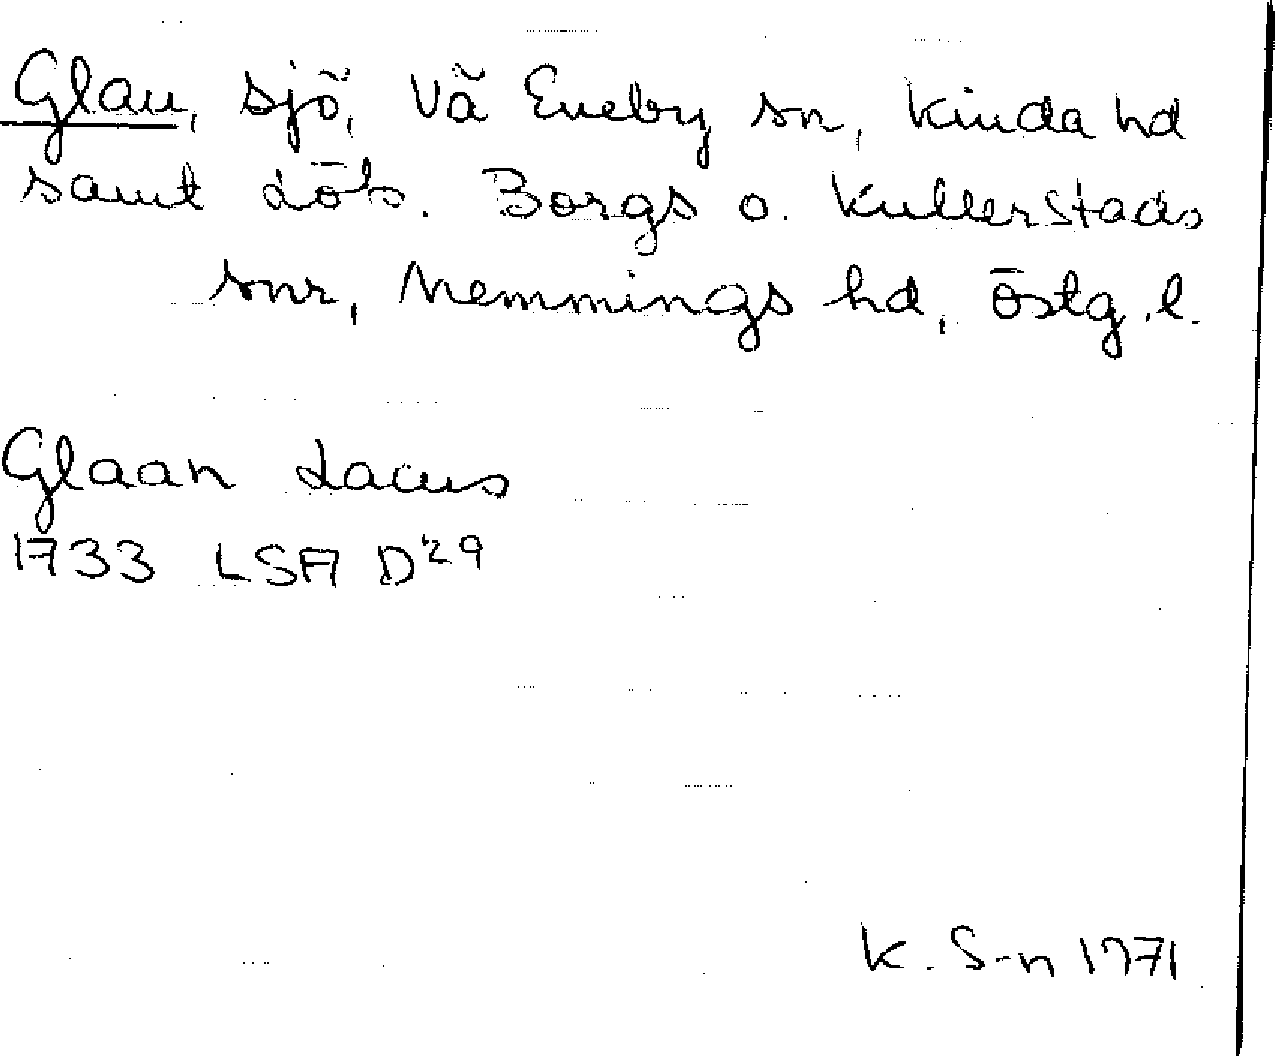 Glan, sjö, Vå Eneby sn, Kinda hd
samt Lösts. Borgs o. Kullerstads
snr, Memmings hd, Östg. l.
Glaan Lacus
1733 LSA D29
K. S-n 1971